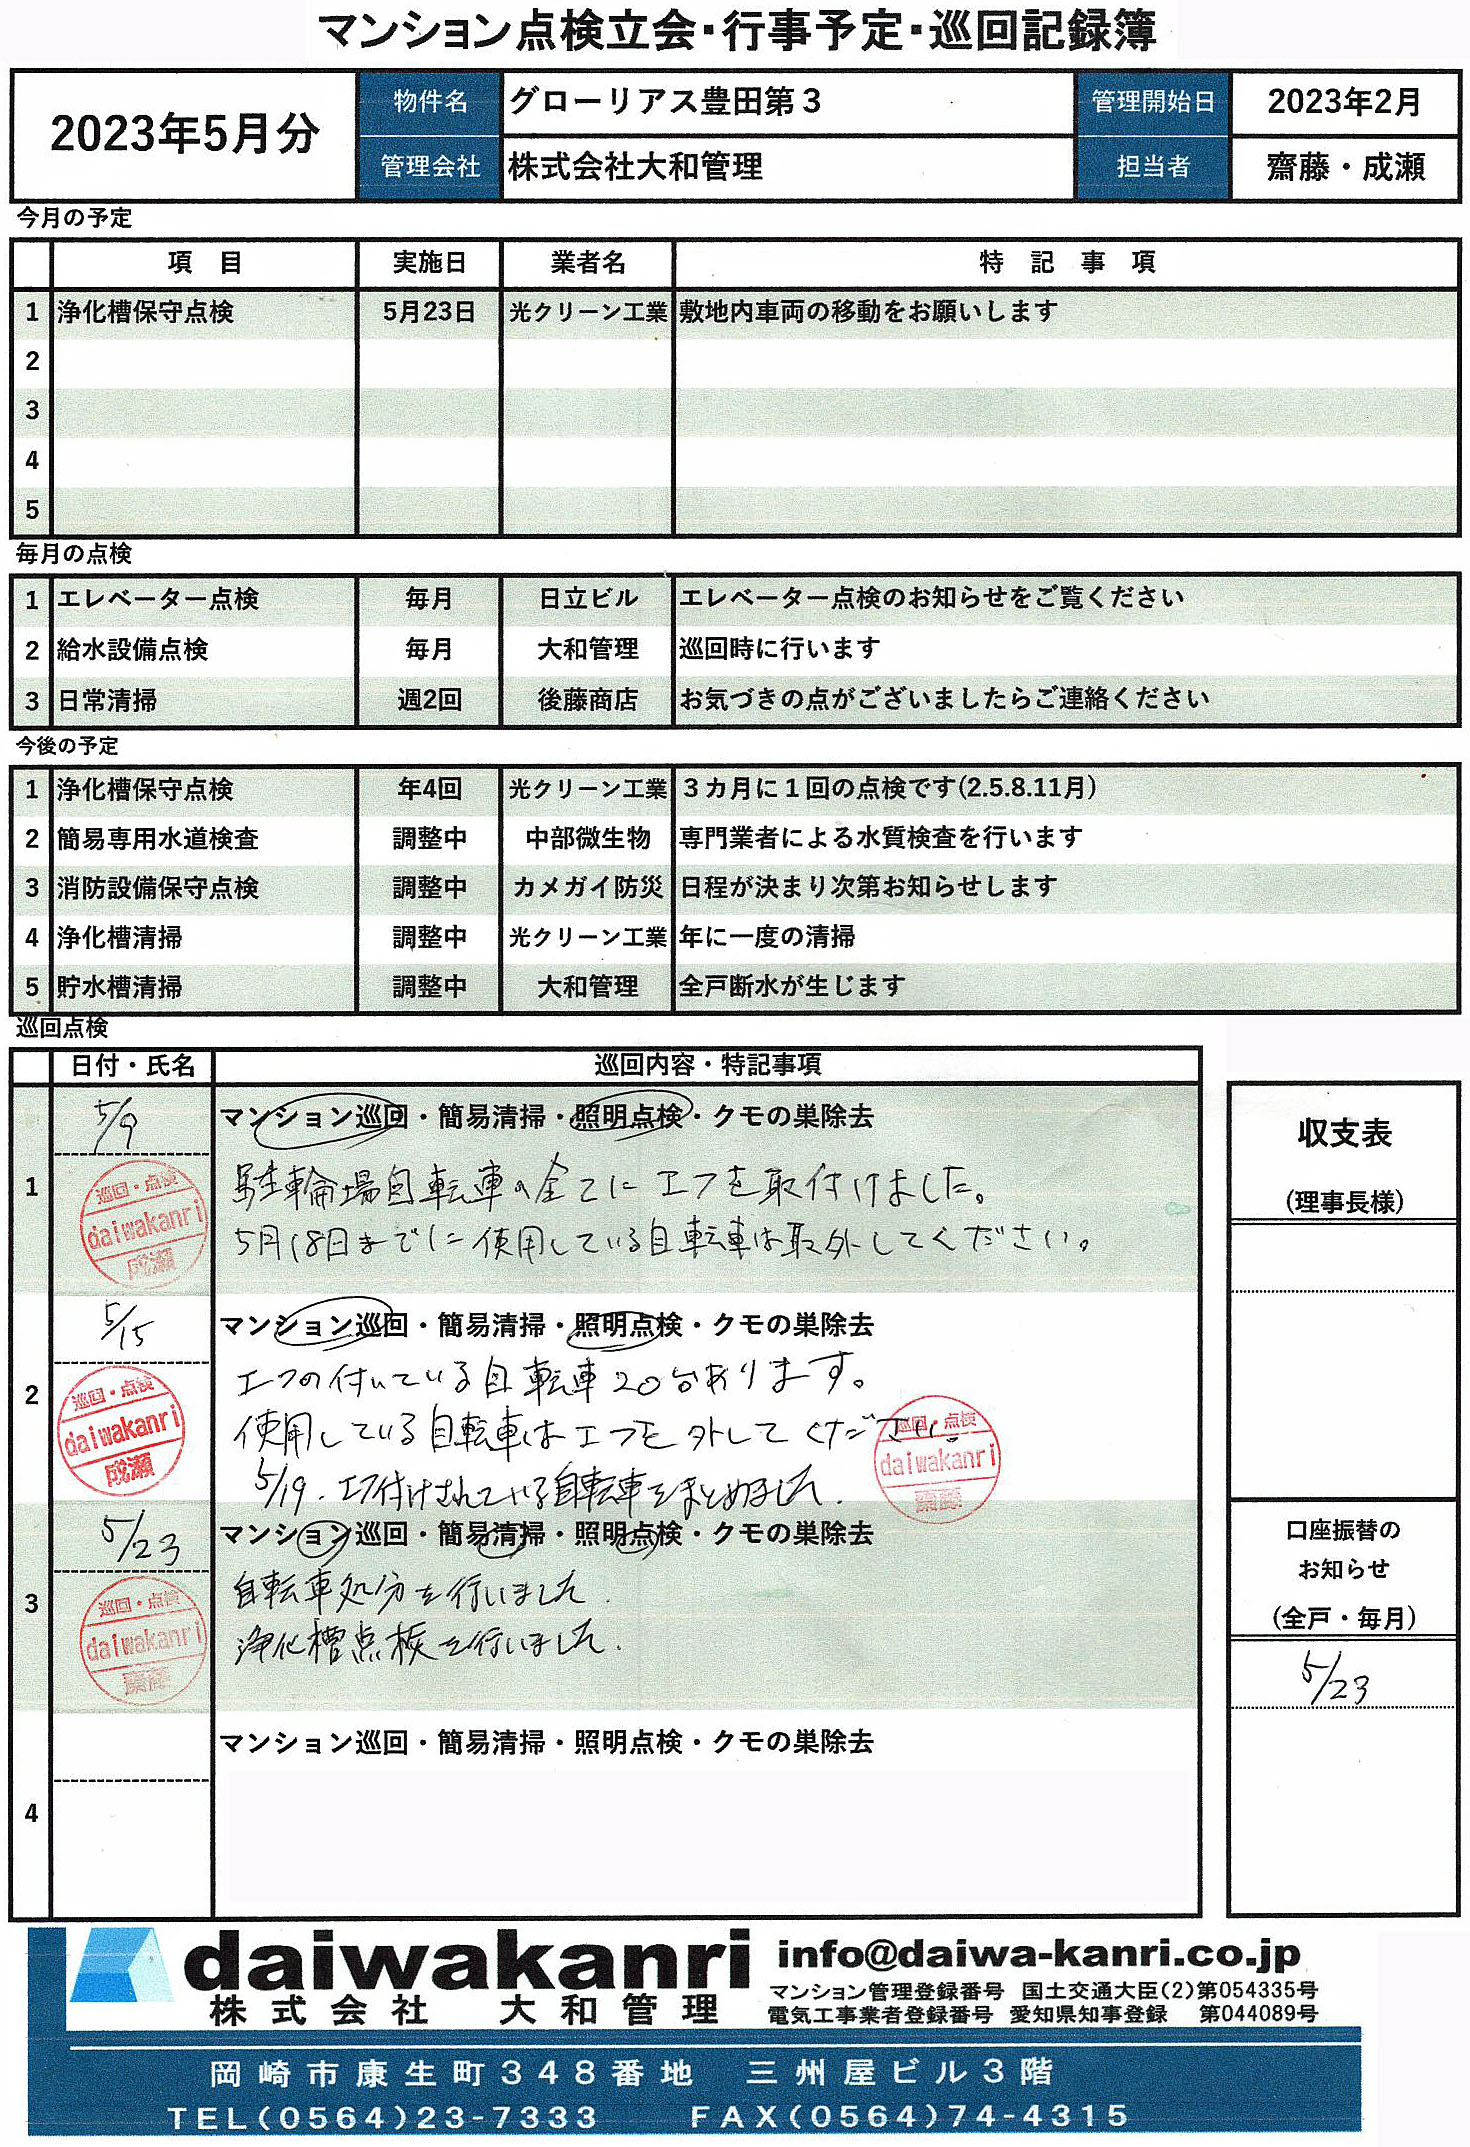 マンション点検立会・行事予定・巡回記録簿
2023年5月分
物件名 グローリアス豊田第3 管理開始日 2023年2月
管理会社 株式会社大和管理 担当者 齋藤・成瀬
今月の予定
項 目 実施日 業者名 特 記 事 項
1 浄化槽保守点検 5月23日 光クリーン工業 敷地内車両の移動をお願いします
2
3
4
5
毎月の点検
1 エレベーター点検 毎月 日立ビル エレベーター点検のお知らせをご覧ください
2 給水設備点検 毎月 大和管理 巡回時に行います
3 日常清掃 週2回 後藤商店 お気づきの点がございましたらご連絡ください
今後の予定
1 浄化槽保守点検 年4回 光クリーン工業 3カ月に1回の点検です(2.5.8.11月)
2 簡易専用水道検査 調整中 中部微生物 専門業者による水質検査を行います
3 消防設備保守点検 調整中 カメガイ防災 日程が決まり次第お知らせします
4 浄化槽清掃 調整中 光クリーン工業 年に一度の清掃
5 貯水槽清掃 調整中 大和管理 全戸断水が生じます
巡回点検
日付・氏名 巡回内容・特記事項
1
5/9
巡回・点検
daiwakanri
成瀬
マンション巡回・簡易清掃・照明点検・クモの巣除去
駐輪場自転車の全てにエフを取付けました。
5月18日までに使用している自転車は取外してください。
2
5/15
巡回・点検
daiwakanri
成瀬
マンション巡回・簡易清掃・照明点検・クモの巣除去
エフの付いている自転車20台あります。
使用している自転車はエフを外してください。
5/19. エフ付けされている自転車をまとめました.
巡回・点検
daiwakanri
齋藤
3
5/23
巡回・点検
daiwakanri
齋藤
マンション巡回・簡易清掃・照明点検・クモの巣除去
自転車処分を行いました.
浄化槽点検を行いました.
4
マンション巡回・簡易清掃・照明点検・クモの巣除去
収支表
(理事長様)
口座振替の
お知らせ
(全戸・毎月)
5/23
daiwakanri
株式会社 大和管理
info@daiwa-kanri.co.jp
マンション管理登録番号 国土交通大臣(2)第054335号
電気工事業者登録番号 愛知県知事登録 第044089号
岡崎市康生町348番地 三州屋ビル3階
TEL(0564)23-7333 FAX(0564)74-4315